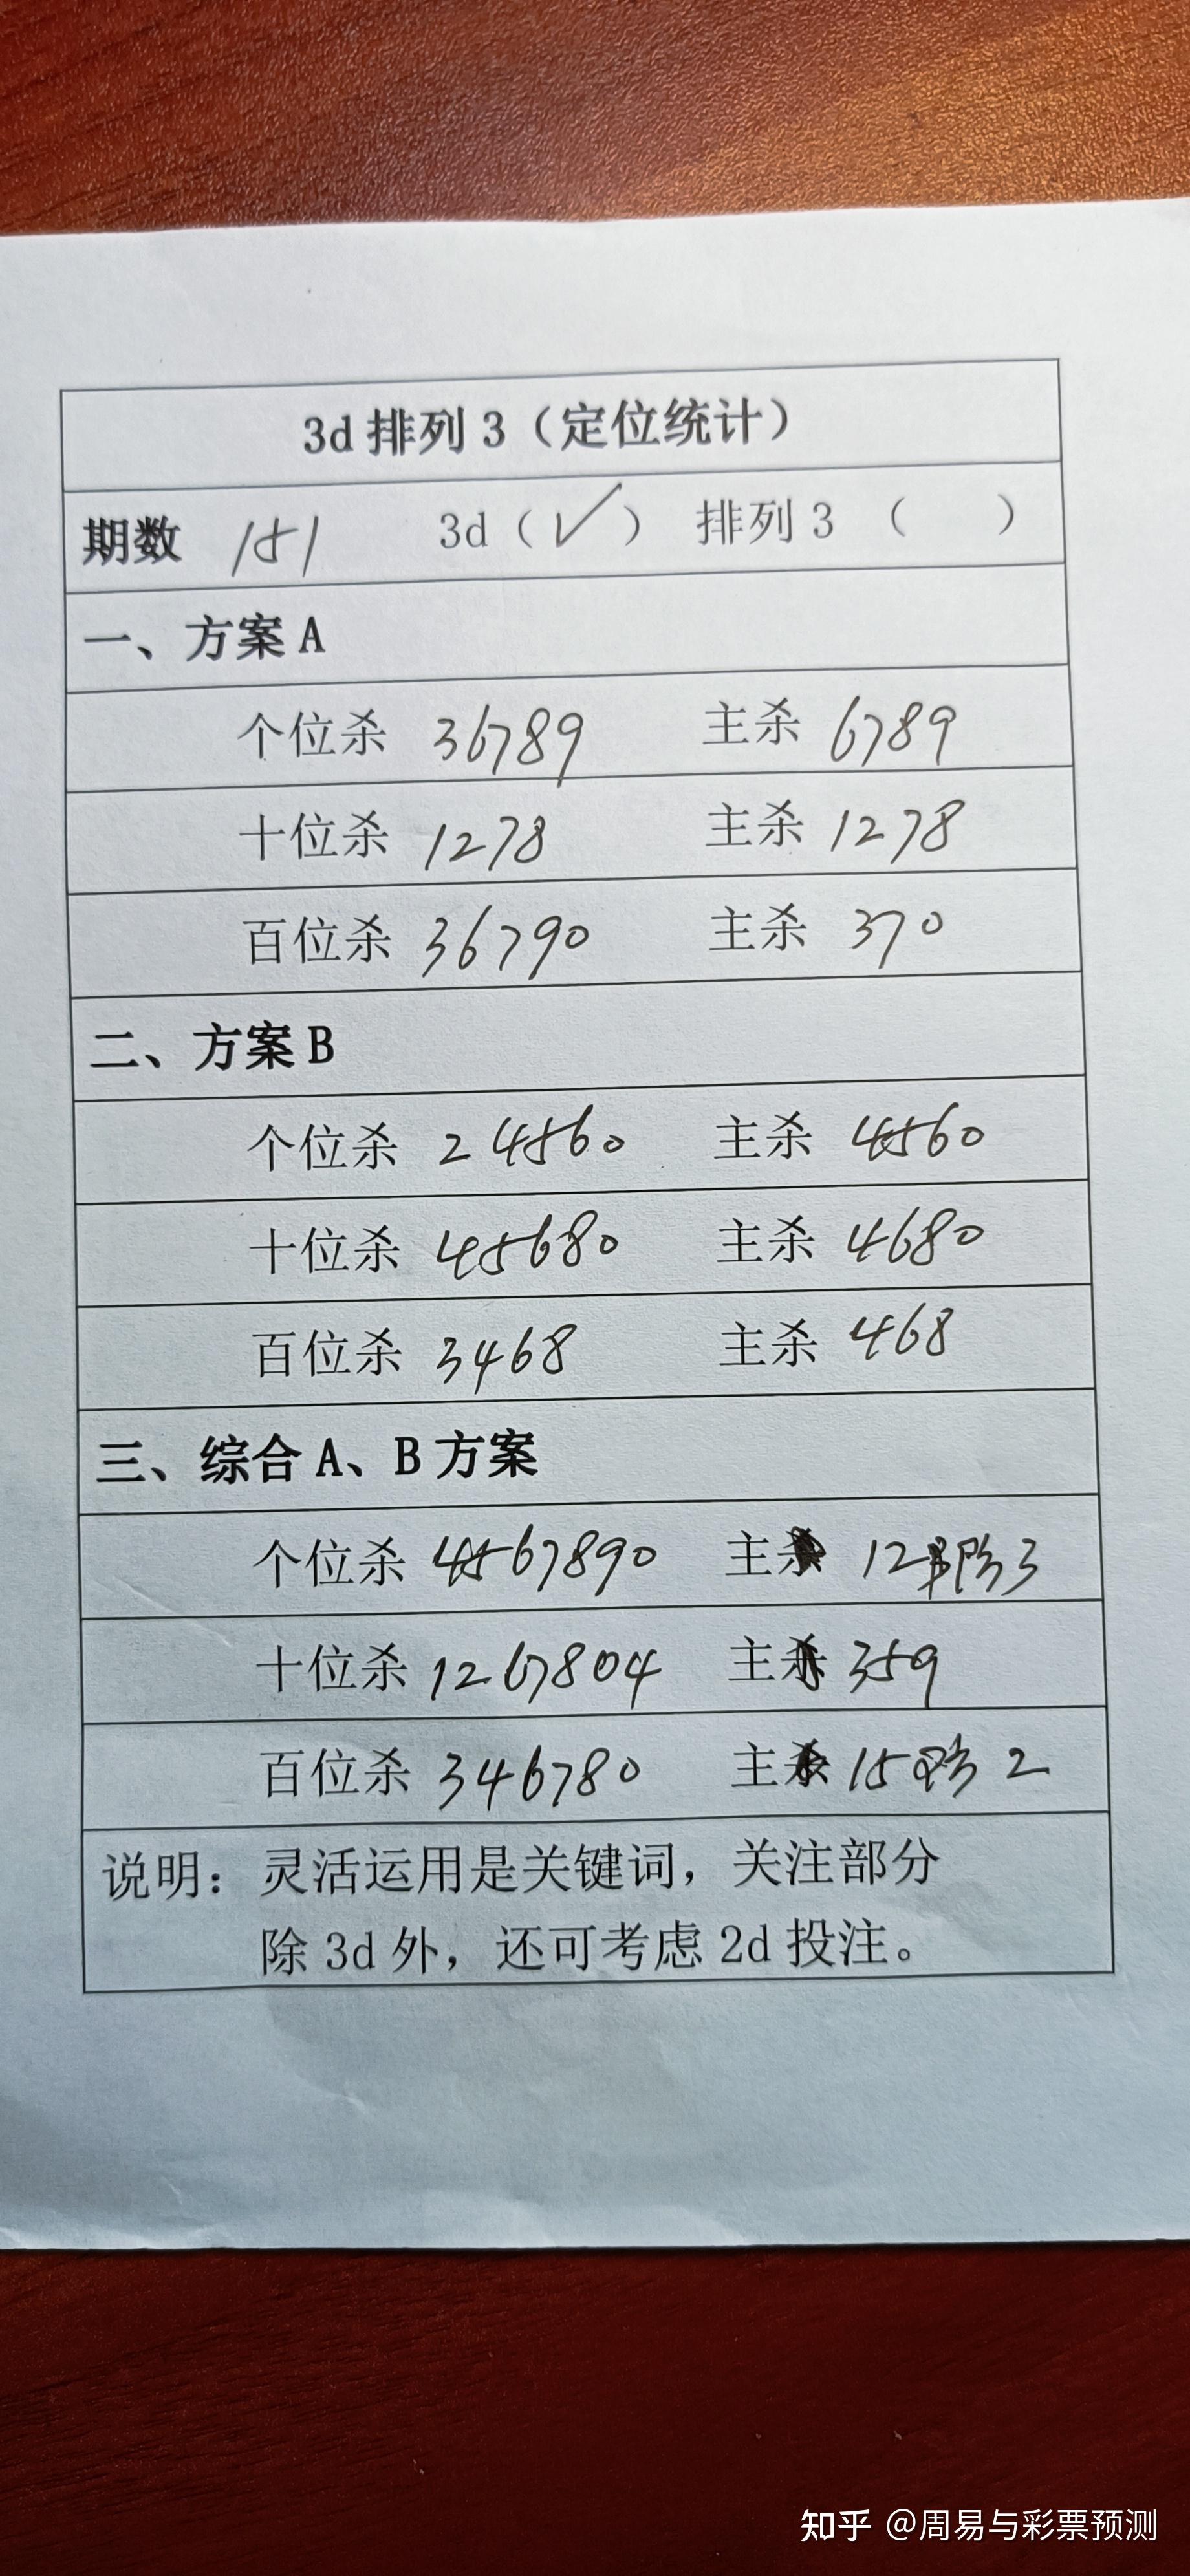 3d 排列 3（定位统计）
期数 151 3d（✓） 排列 3 （ ）
一、方案 A
个位杀 36789 主杀 6789
十位杀 1278 主杀 1278
百位杀 36790 主杀 370
二、方案 B
个位杀 24560 主杀 4560
十位杀 45680 主杀 4680
百位杀 3468 主杀 468
三、综合 A、B 方案
个位杀 4567890 主 12 防 3
十位杀 1267804 主 359
百位杀 346780 主 15 防 2
说明：灵活运用是关键词，关注部分
除 3d 外，还可考虑 2d 投注。
知乎 @周易与彩票预测